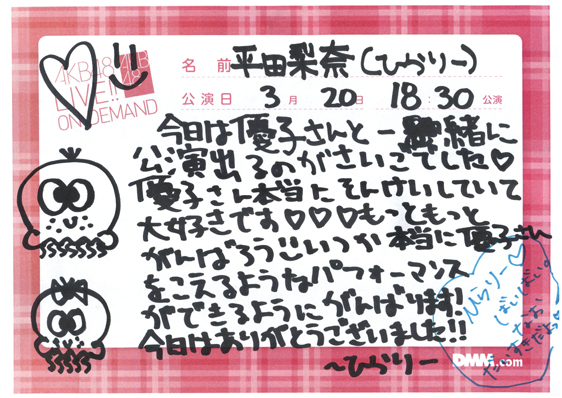 AKB48
LIVE!!
ON DEMAND
名前 平田梨奈(ひらりー)
公演日 3月20日 18:30公演
今日は優子さんと一緒に
公演出るのがさいごでした♡
優子さん本当にそんけいしていて
大好きです♡♡♡もっともっと
がんばろう いつか本当に優子さん
をこえるようなパフォーマンス
ができるようにがんばります!
今日はありがとうございました!!
〜ひらりー
ひらりー♡
ばいばい。
DMM.com